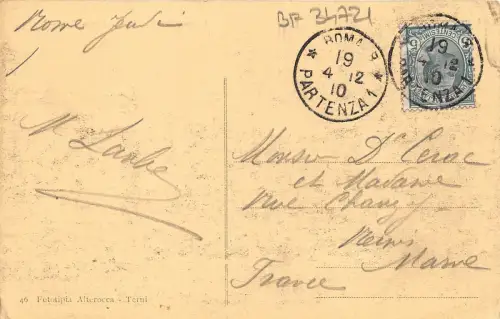 BF 34721
Rome jeudi
ROMA
19
4 12
10
PARTENZA 1
ROMA
19
12
10
PARTENZA 1
M
Monsieur Dr
et Madame
Rue Chanzy
Reims
Marne
France
46 Fototipia Alterocca - Terni